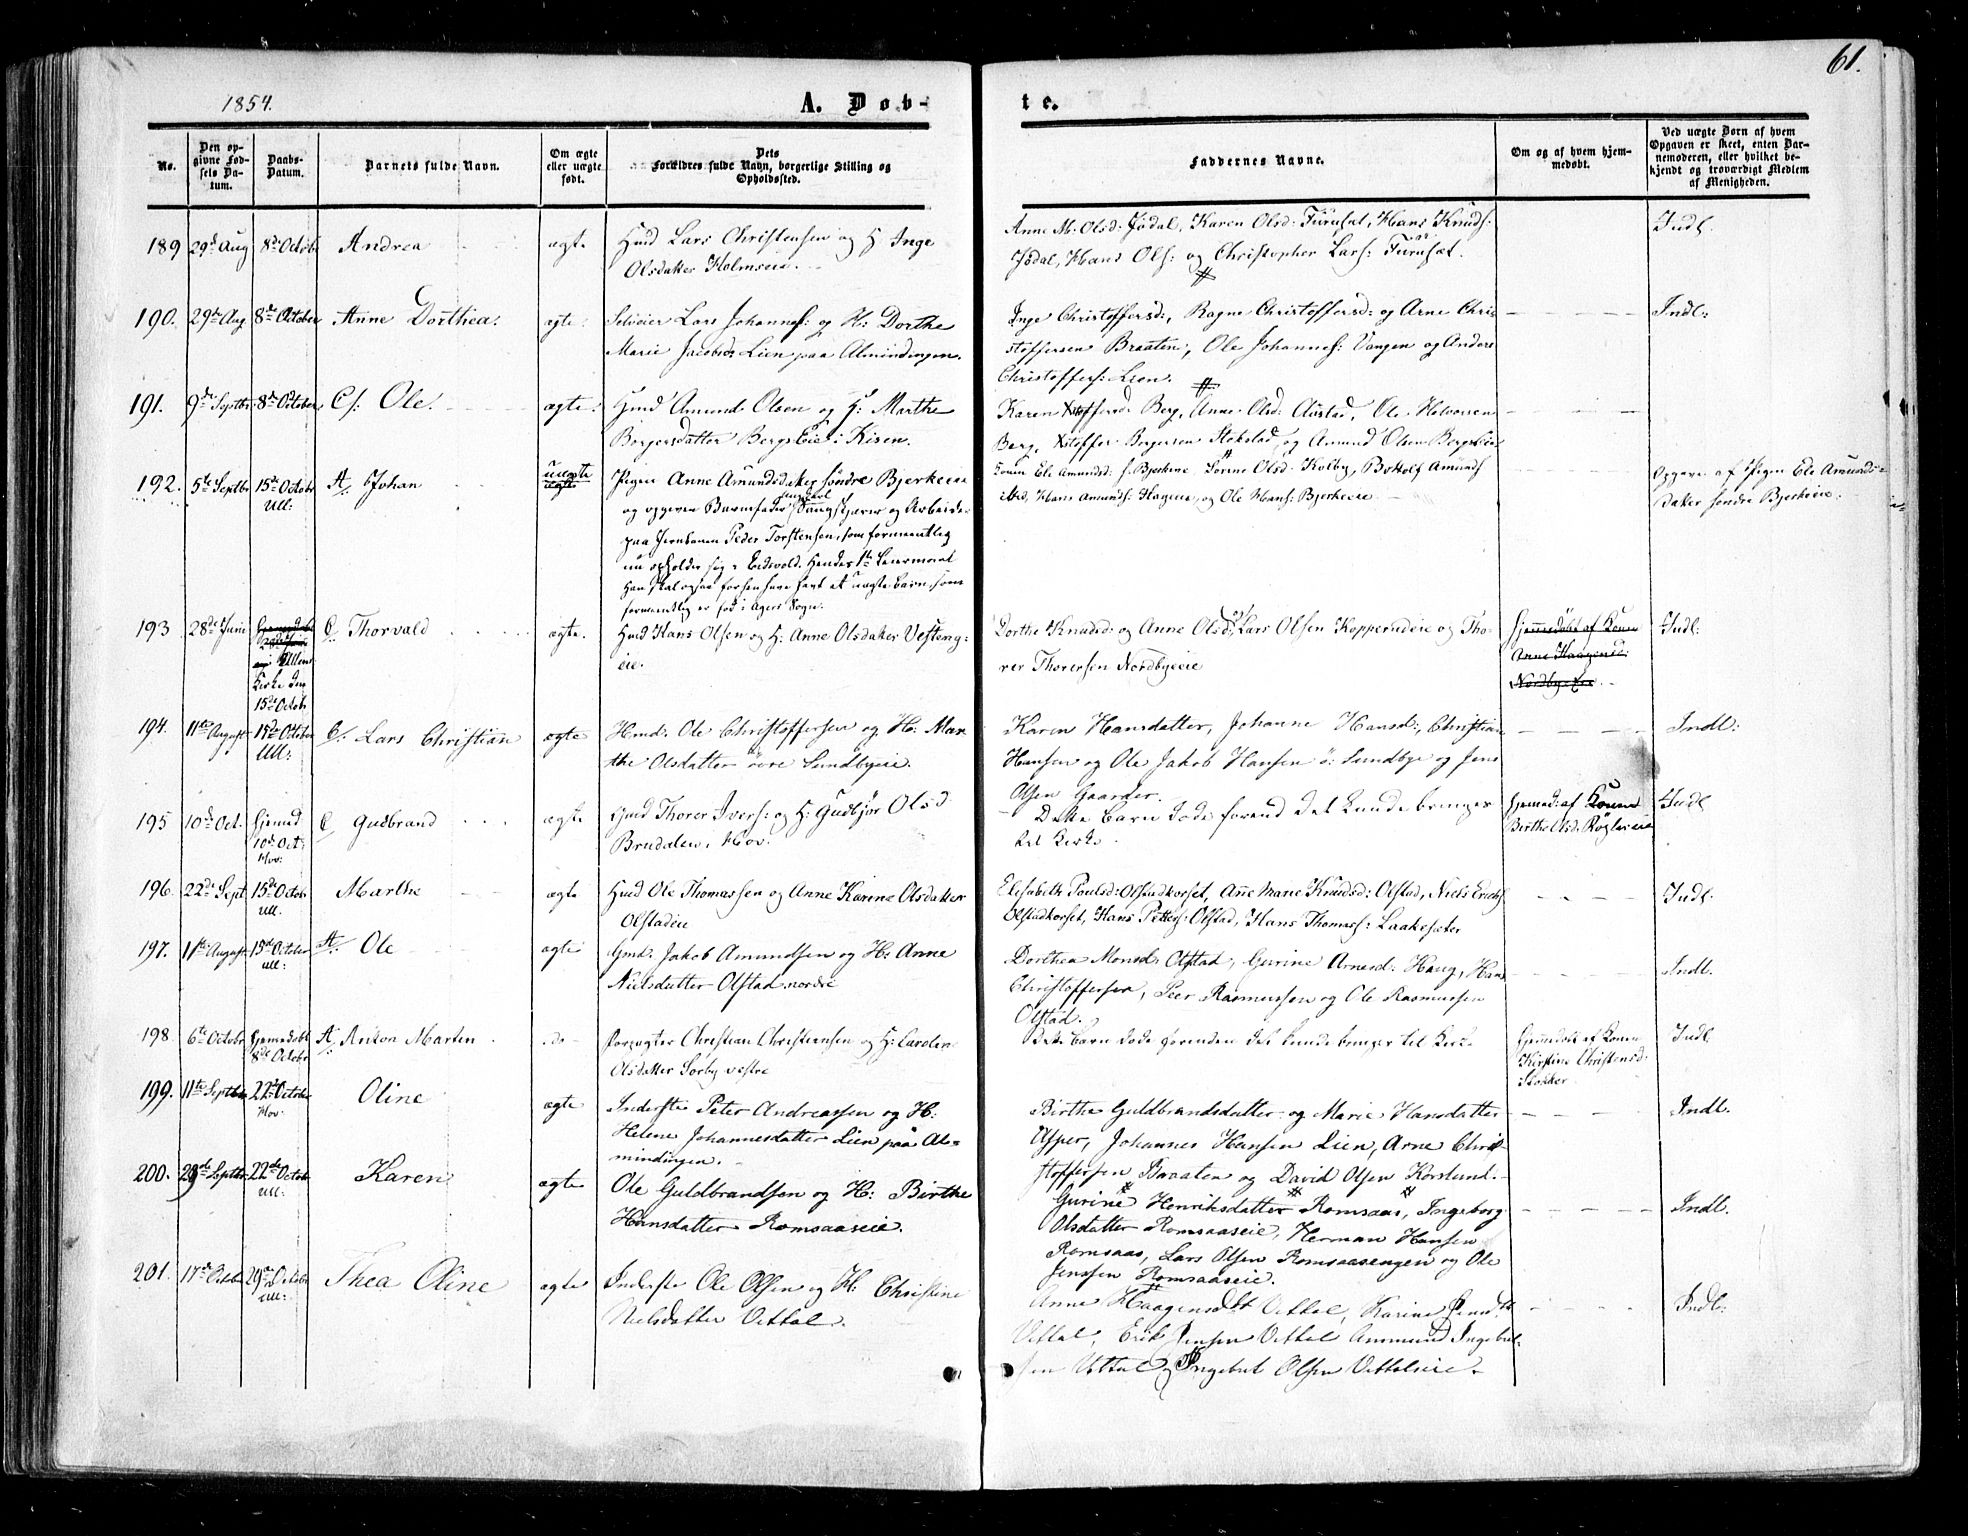 61.
1854.
A. Døb-
te.
No.
Den op-
givne Fød-
sels Da-
tum.
Daabs-
Datum.
Barnets fulde Navn.
Om ægte
eller uægte
født.
Dets
Forældres fulde Navn, borgerlige Stilling og
Opholdssted.
Faddernes Navne.
Om og af hvem hjem-
medøbt.
Ved uægte Børn af hvem
Opgaven er skeet, enten Bar-
nemoderen, eller hvilket be-
kjendt og troværdigt Medlem
af Menigheden.
189 29de Aug 8de Octobr Andrea ægte Hmd Lars Christensen og H Inge
Olsdatter Holmseie.
Anne M: Olsd: Jødal, Karen Olsd: Furuset, Hans Knuds:
Jødal, Hans Ols: og Christopher Lars: Furuset.
Indl.
190. 29de Aug. 8de October Anne Dorthea. ægte. Selveier Lars Johannes: og H: Dorthe
Marie Jacobsd: Lien paa Almindingen.
Inge Christoffersd:, Ragne Christoffersd: og Arne Chri-
stoffersen Braaten, Ole Johannes: Vangen og Anders
Christoffers: Lien.
Indl:
191. 9de Septbr 8de October C/. Ole. ægte. Hmd Amund Olsen og H: Marthe
Borgersdatter Bergs Eie i Kisen.
Karen Xstoffersd: Berg, Anne Olsd: Austad, Ole Halvorsen
Berg, Xstoffer Borgersen Stokstad, og Amund Olsen Bergseie
192. 5te Septbr 15de Octobr
Ull: A/. Johan uægte
ægte Pigen Anne Amundsdatter søndre Bjerkeeie
og opgiven Barnefader Ungkarl Slusgskjærer og Arbeider
paa Jernbanen Peder Torstensen, som formentlig
nu opholder sig i Eidsvold. Hendes 1ste Leiermaal
Han skal ogsaa forhen have havt et uægte Barn, som
formentlig er fød i Agers Sogn.
Konen Ele Amundsd: s. Bjerkeie Sorine Olsd. Kolby, Botolf Amunds
Hans Amunds: Hageneie, og Ole Hans: Bjerkeeie
Opgave af Pigen Ele Amunds-
datter søndre Bjerkeeie.
193 28de Juni
i Ullens.
Kirke den
15de Octobr C. Thorvald ægte. Hmd Hans Olsen og H: Anne Olsdatter Vesteng-
eie.
Dorthe Knudsd: og Anne Olsd:, og Lars Olsen Kopperudeie og Tho-
rer Thorersen Nordbyeie
Hjemmedøbt af Konen
Anne Haagensd:
Nordby-Eie
Indl:
194. 11te August 15de October
Ull: C/. Lars Christian ægte Hmd. Ole Christoffersen og H: Mar-
the Olsdatter øvre Sundbyeie.
Karen Hansdatter, Johanne Hansd:, Christian
Hansen og Ole Jakob Hansen ø: Sundbye og Jens
Olsen Gaarder.
Indl:
195 10de Oct. Hjemd
10de Oct:
Hov: C Gudbrand ægte Hmd Thorer Ivers: og H: Gudbjør Olsd
Brudalen, Hov.
Dette Barn døde forend det kunde bringes
til Kirke.
Hjemmed: af Konen
Birthe Olsd: Røgleeie
Indl
196. 22de Sept 15de Octobr
Ull. Marthe ægte Hmd Ole Thomassen og Anne Karine Olsdatter
Olstadeie
Elisabeth Paulsd: Olstadkorset, Anne Marie Knudsd: Olstad, Niels Ericks
Olstadkorset, Hans Petters: Olstad, Hans Thomass: Laakesæter
Indl.
197. 11te August 15de October
Ull: A/. Ole ægte Gmd. Jakob Amundsen og H: Anne
Nielsdatter Olstad nordre
Dorthea Monsd: Olstad, Gurine Arnesd: Haug, Hans
Christoffersen, Peer Rasmussen og Ole Rasmussen
Olstad.
Indl.
198. 6te Octobr Hjemmedøbt
8de Octobr A/. Anton Martin do Forpagter Christian Christensen og H: Caroline
Olsdatter Sørby vestre
Dette Barn døde forinden det kunde bringes til Kirke
Hjemmedøbt af Konen
Kirstine Christensd:
Stokker
Indl
199. 11te Septbr 22de October
Hov: Oline ægte Inderste Peter Andreassen og H:
Helene Johannesdatter Lien paa Al-
mindingen.
Birthe Guldbrandsdatter og Marie Hansdatter
Asper, Johannes Hansen Lien, Arne Chri-
stoffersen Braaten og David Olsen Korslund.
Indl.
200. 29de Septbr 22de Octobr
Ull: Karen ægte Ole Guldbrandsen og H: Birthe
Hansdatter Romsaaseie.
Gurine Henriksdatter Romsaas, Ingeborg
Olsdatter Romsaaseie, Herman Hansen
Romsaas, Lars Olsen Romsaasengen og Ole
Jenssen Romsaaseie.
Indl.
201. 17de Octobr 29de Octobr
Ull: Thea Oline ægte Inderste Ole Olsen og H: Christine
Nielsdatter Vettal.
Anne Haagensdt Vettal, Karine
Vettal, Erik Jensen Vettal Ammund Ingebret-
sen Vettal og Ingebret Olsen Vettaleie.
Indl: